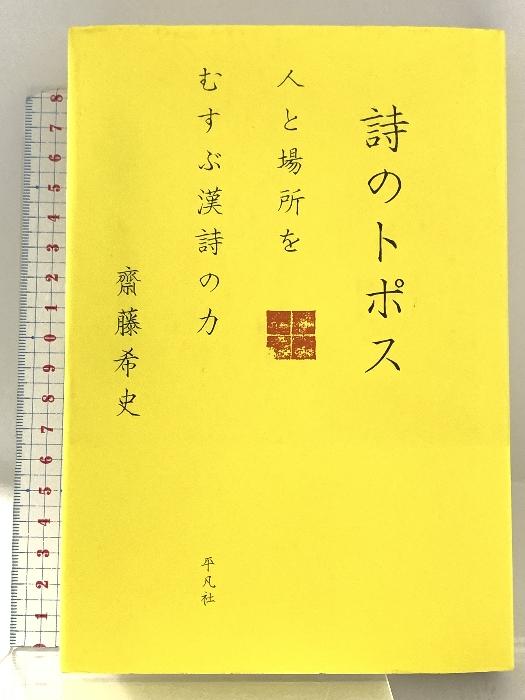 詩のトポス
人と場所を
むすぶ漢詩の力
齋藤希史
平凡社
8
7
6
5
4
3
2
1
0
9
8
7
6
5
4
3
2
1